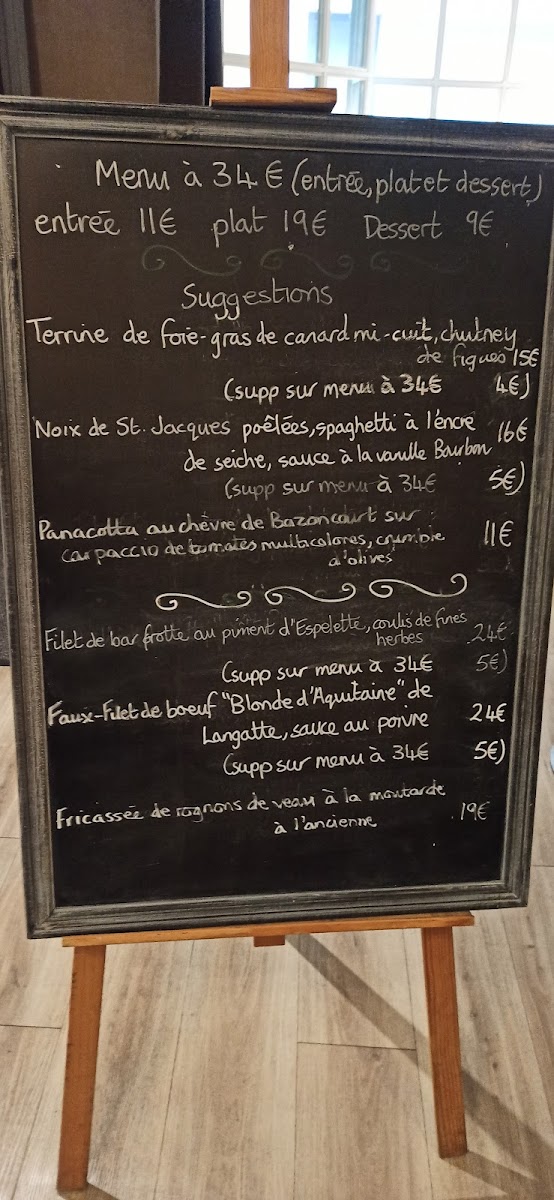 Menu à 34 € (entrée, plat et dessert)
entrée 11€ plat 19€ Dessert 9€
Suggestions
Terrine de foie-gras de canard mi-cuit, chutney
de figues 15€
(supp sur menu à 34€ 4€)
Noix de St. Jacques poêlées, spaghetti à l'encre 16€
de seiche, sauce à la vanille Bourbon
(supp sur menu à 34€ 5€)
Panacotta au chèvre de Bazoncourt sur
carpaccio de tomates multicolores, crumble 11€
d'olives
Filet de bar frotté au piment d'Espelette, coulis de fines
herbes 24€
(supp sur menu à 34€ 5€)
Faux-Filet de boeuf "Blonde d'Aquitaine" de
Langatte, sauce au poivre 24€
(supp sur menu à 34€ 5€)
Fricassée de rognons de veau à la moutarde
à l'ancienne 19€